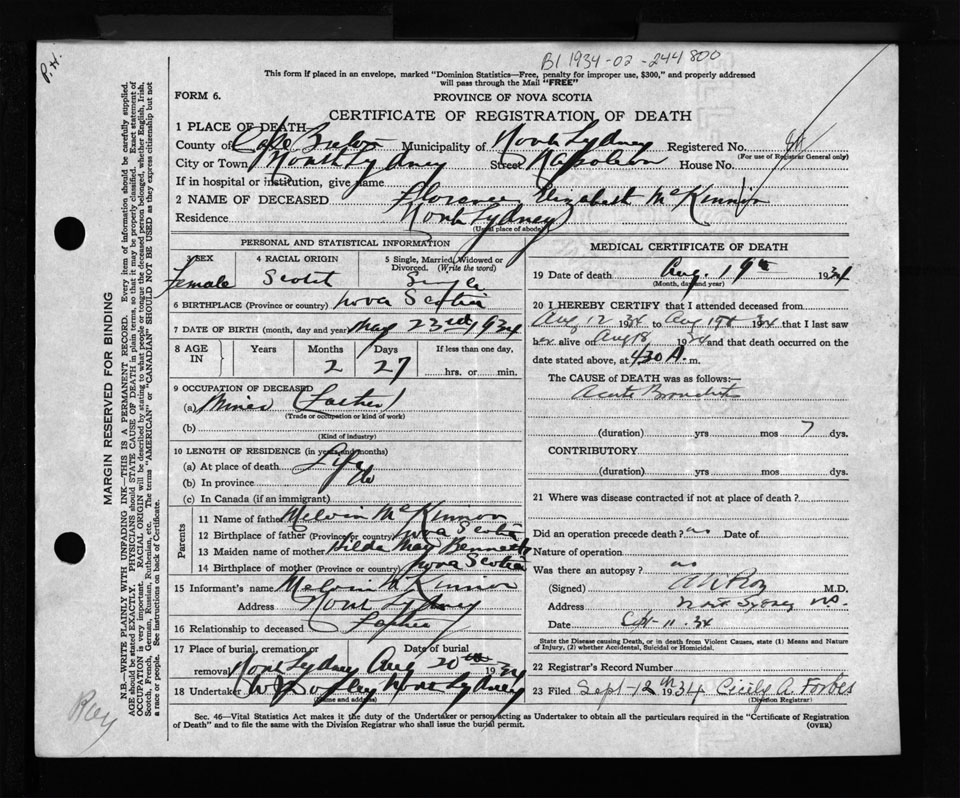 B1 1934-02-244800
P.H.
This form if placed in an envelope, marked "Dominion Statistics—Free, penalty for improper use, $300," and properly addressed
will pass through the Mail "FREE"
FORM 6.
PROVINCE OF NOVA SCOTIA
CERTIFICATE OF REGISTRATION OF DEATH
1 PLACE OF DEATH
County of Cape Breton Municipality of North Sydney Registered No.
(For use of Registrar General only)
City or Town North Sydney Street Napoleon House No.
If in hospital or institution, give name
2 NAME OF DECEASED Florence Elizabeth McKinnon
Residence North Sydney
(Usual place of abode)
PERSONAL AND STATISTICAL INFORMATION
3 SEX 4 RACIAL ORIGIN 5 Single, Married, Widowed or
Divorced. (Write the word)
Female Scotch Single
6 BIRTHPLACE (Province or country) Nova Scotia
7 DATE OF BIRTH (month, day and year) May 23rd 1934
8 AGE IN Years Months Days If less than one day,
2 27 hrs. or min.
9 OCCUPATION OF DECEASED
(a) Miner (Father)
(Trade or occupation or kind of work)
(b)
(Kind of industry)
10 LENGTH OF RESIDENCE (in years and months)
(a) At place of death Life
(b) In province do
(c) In Canada (if an immigrant)
Parents
11 Name of father Melvin McKinnon
12 Birthplace of father (Province or country) Nova Scotia
13 Maiden name of mother Hilda May Bennett
14 Birthplace of mother (Province or country) Nova Scotia
15 Informant's name Melvin McKinnon
Address North Sydney
16 Relationship to deceased Father
17 Place of burial, cremation or Date of burial
removal North Sydney Aug 20th 1934
18 Undertaker North Sydney
(Name and address)
MEDICAL CERTIFICATE OF DEATH
19 Date of death Aug. 19th 1934
(Month, day and year)
20 I HEREBY CERTIFY that I attended deceased from
Aug 12 1934 to Aug 19th 1934 that I last saw
her alive Aug 18 1934 and that death occurred on the
date stated above, at 430 A. m.
The CAUSE of DEATH was as follows:—
Acute Bronchitis
(duration) yrs mos 7 dys.
CONTRIBUTORY
(duration) yrs mos dys.
21 Where was disease contracted if not at place of death?
Did an operation precede death? no Date of
Nature of operation
Was there an autopsy? no
(Signed) M.D.
Address North Sydney NS.
Date Sept 11 34
State the Disease causing Death, or in death from Violent Causes, state (1) Means and Nature
of Injury, (2) whether Accidental, Suicidal or Homicidal.
22 Registrar's Record Number
23 Filed Sept 12th 1934 Cicily A. Forbes
(Division Registrar)
Sec. 46—Vital Statistics Act makes it the duty of the Undertaker or person acting as Undertaker to obtain all the particulars required in the "Certificate of Registration
of Death" and to file the same with the Division Registrar who shall issue the burial permit.
(OVER)
MARGIN RESERVED FOR BINDING
N.B.—WRITE PLAINLY WITH UNFADING INK—THIS IS A PERMANENT RECORD. Every item of information should be carefully supplied.
AGE should be stated EXACTLY. PHYSICIANS should STATE CAUSE OF DEATH in plain terms, so that it may be properly classified. Exact statement of
OCCUPATION is very important. RACIAL ORIGIN will be described by stating to what people or tongue the deceased person belonged, whether English, Irish,
Scotch, French, German, Russian, Ruthenian, etc. The terms "AMERICAN" or "CANADIAN SHOULD NOT BE USED as they express citizenship but not
a race or people. See instructions on back of Certificate.